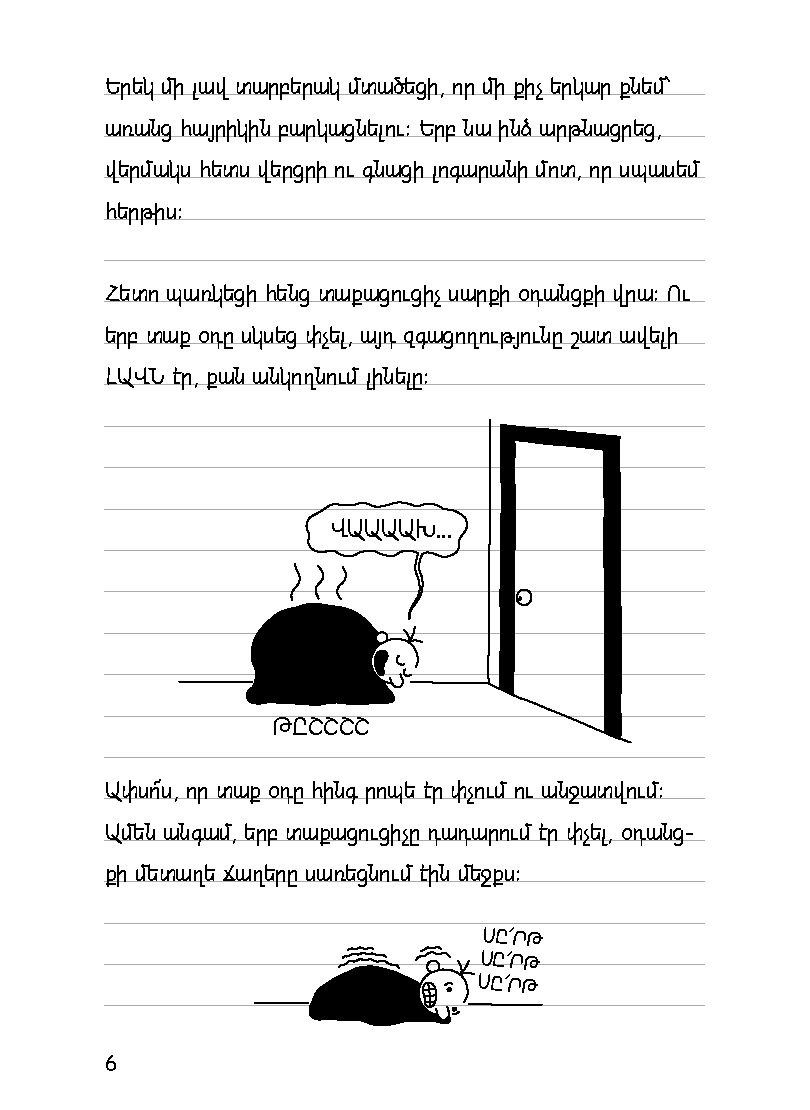 Երեկ մի լավ տարբերակ մտածեցի, որ մի քիչ երկար քնեմ՝
առանց հայրիկին բարկացնելու։ Երբ նա ինձ արթնացրեց,
վերմակս հետս վերցրի ու գնացի լոգարանի մոտ, որ սպասեմ
հերթիս։
Հետո պառկեցի հենց տաքացուցիչ սարքի օդանցքի վրա։ Ու
երբ տաք օդը սկսեց փչել, այդ զգացողությունը շատ ավելի
ԼԱՎՆ էր, քան անկողնում լինելը։
ՎԱԱԱԱԽ...
ԹԸՇՇՇՇ
Ափսո՜ս, որ տաք օդը հինգ րոպե էր փչում ու անջատվում։
Ամեն անգամ, երբ տաքացուցիչը դադարում էր փչել, օդանց-
քի մետաղե ճաղերը սառեցնում էին մեջքս։
ՍԸ՛ՐԹ
ՍԸ՛ՐԹ
ՍԸ՛ՐԹ
6